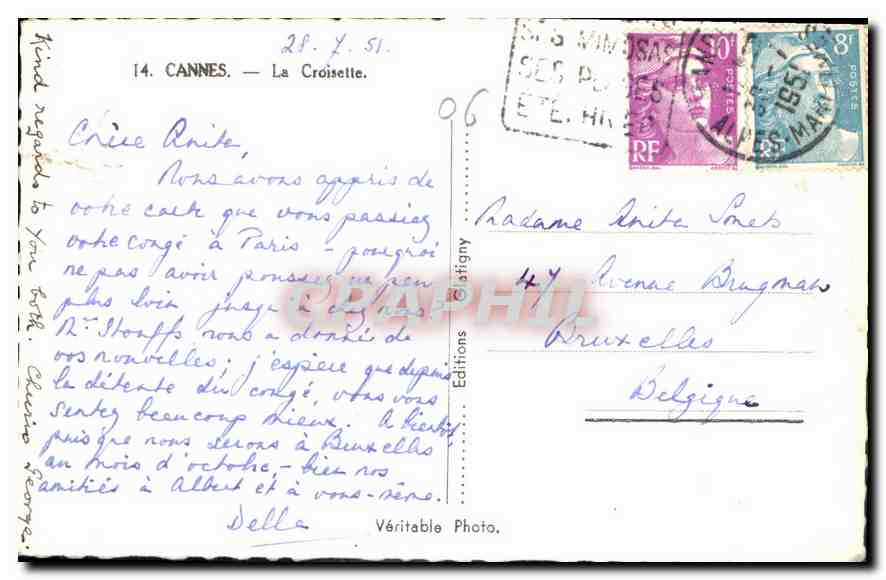 28.7.51.
14. CANNES. — La Croisette.
06
Chère Anita,
Nous avons appris de
votre carte que vous passiez
votre congé à Paris – pourquoi
ne pas avoir pousser un peu
plus loin jusqu'à chez nous?
Mr Stouffs nous a donné de
vos nouvelles; j'espère que depuis
la détente du congé, vous vous
sentez beaucoup mieux. A bientôt
puisque nous serons à Bruxelles
au mois d'octobre, – bien nos
amitiés à Albert et à vous-même.
Della
Kind regards to You both. Cheerio George.
Editions Glatigny
Véritable Photo.
SES MIMOSAS
SES
ETE. HIVER
10F
POSTES
RF
8F
POSTES
RF
1951
ALPES MAR
Madame Anita
47 Avenue Brugman
Bruxelles
Belgique
CPAPHIL